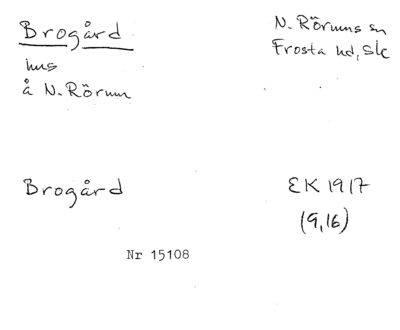 Brogård
N. Rörums sn
Frosta hd, Sk
hus
å N. Rörum
Brogård
EK 1917
(9,16)
Nr 15108